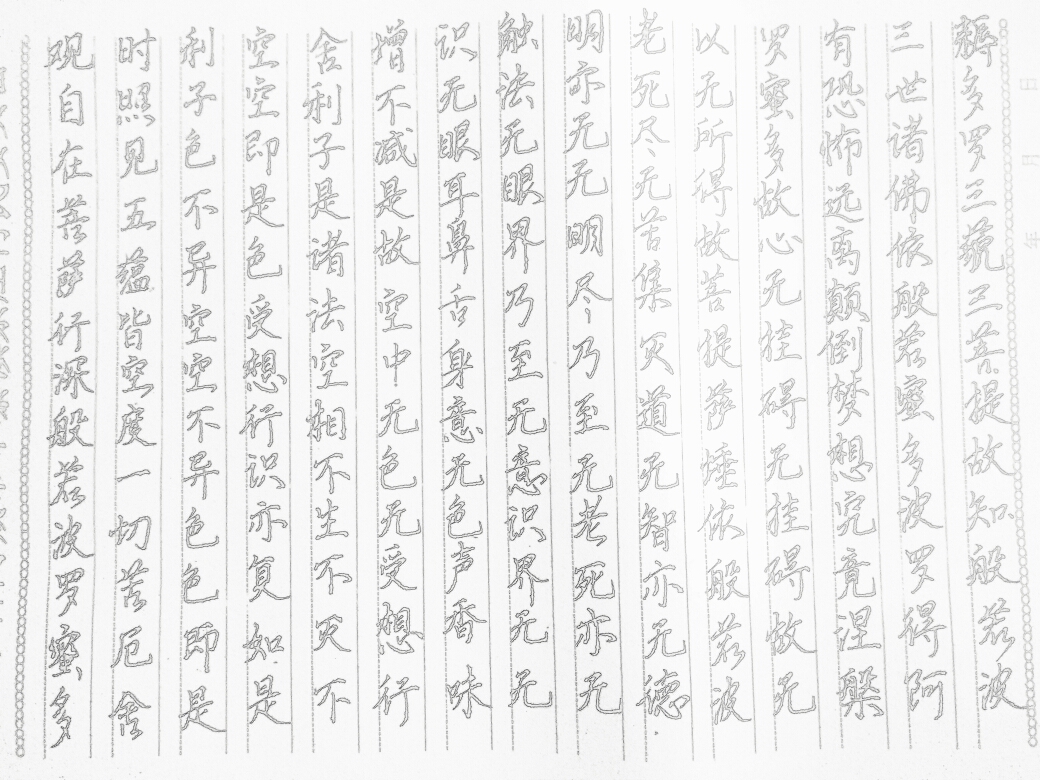 观自在菩萨行深般若波罗蜜多
时照见五蕴皆空度一切苦厄舍
利子色不异空空不异色色即是
空空即是色受想行识亦复如是
舍利子是诸法空相不生不灭不
增不减是故空中无色无受想行
识无眼耳鼻舌身意无色声香味
触法无眼界乃至无意识界无无
明亦无无明尽乃至无老死亦无
老死尽无苦集灭道无智亦无德
以无所得故菩提萨埵依般若波
罗蜜多故心无挂碍无挂碍故无
有恐怖远离颠倒梦想究竟涅槃
三世诸佛依般若蜜多波罗得阿
耨多罗三藐三菩提故知般若波
年月日